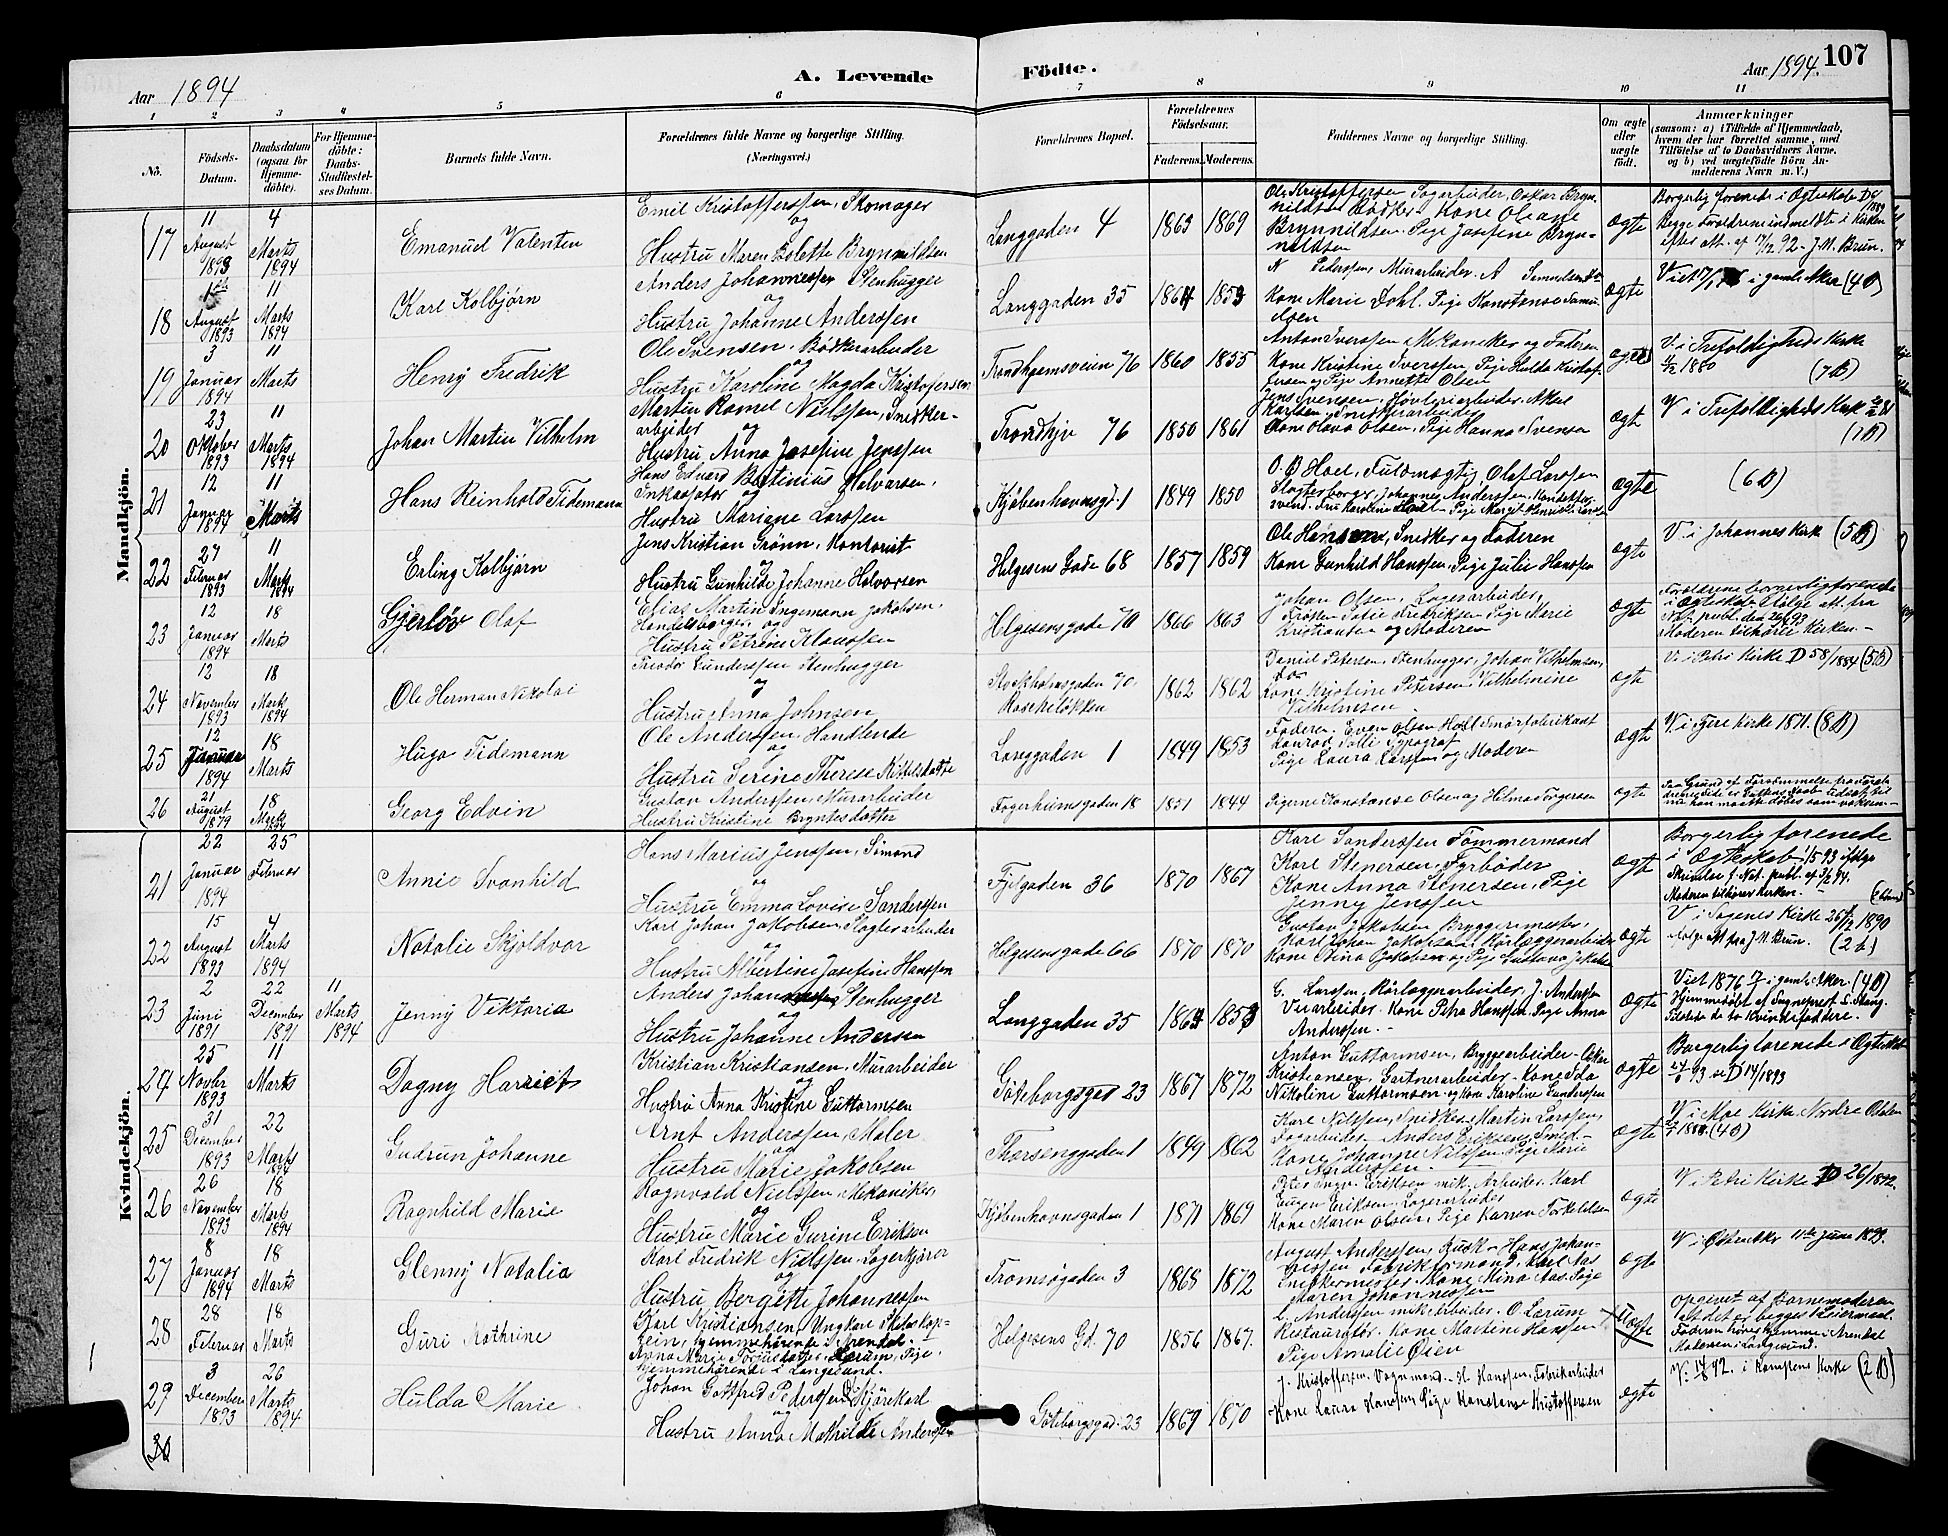 Aar 1894
A. Levende
Födte.
Aar 1894. 107
1 2 3 4 5 6 7 8 9 10 11
No.
Födsels-
Datum.
Daabsdatum
(ogsaa for
Hjemme-
döbte).
For Hjemme-
döbte:
Daabs-
Stadfæstel-
ses Datum.
Barnets fulde Navn.
Forældrenes fulde Navne og borgerlige Stilling.
(Næringsvei.)
Forældrenes Bopæl.
Forældrenes
Födselsaar.
Faderens. Moderens.
Faddernes Navne og borgerlige Stilling.
Om ægte
eller
uægte
födt.
Anmærkninger
(saasom: a) i Tilfælde af Hjemmedaab,
hvem der har forrettet samme, med
Tilföielse af to Daabsvidners Navne,
og b) ved uægtefödte Börn An-
melderens Navn m. V.)
Mandkjön.
17
11 August 1893
4 Marts 1894
Emanuel Valentin
Emil Kristofferssen, Skomager
og
Hustru Maren Bolette Brynnildsen
Langgaden 4
1863 1869
Ole Kristoffersen Sagarbeider, Oskar Bryn-
nildsen Bödker, Kone Oleane
Brynnildsen, Pige Josefine Bryn-
nildsen
ægte
Borgerlig forenede i Ægteskab
Begge Forældrene indmeldte i Kirken
efter att. af 7/12 92 - J. M. Brun.
18
August 1893
11 Marts 1894
Karl Kolbjörn
Anders Johannessen Stenhugger
og
Hustru Johanne Anderssen
Langgaden 35
1864 1853
Pederssen, Murarbeider. A Samuelsen
Kone Marie Dahl. Pige Konstanse Samu-
elsen
ægte
Viet i gamle Aker (4 B)
19
3 Januar 1894
11 Marts
Henry Fredrik
Ole Svensen, Bödkerarbeider
og
Hustru Karoline Magda Kristofersen
Trondhjemsveien 76
1860 1855
Anton Iverssen Mekaniker og Faderen
Kone Kristine Iverssen, Pige Hulda Kristof-
fersen og Pige Annette Olsen
ægte
V. i Trefoldigheds Kirke
1880 (7 B)
20
23 Oktober 1893
11 Marts 1894
Johan Martin Vilhelm
Martin Romel Nielssen, Snedker-
arbeider og
Hustru Anna Josefine Jenssen
Trondhjv 76
1850 1861
Jens Svensen, Høvleriarbeider, Aksel
Karlsen, Snedkerarbeider
Kone Olava Olsen, Pige Hanna Svensen
ægt
V i Trefoldigheds Kirk
(7 B)
21
12 Januar 1894
11 Marts
Hans Reinhold Tidemann
Hans Edvard Bertinius Halvorsen,
Inkassator og
Hustru Mariane Larssen
Kjøbenhavnsgd. 1
1849 1850
O. B Hoel, Fuldmægtig, Olaf Larssen
Slagterborger, Johannes Anderssen, Konditor-
svend. Fru Karoline Hoel Pige Margit Henriette Larsen
ægte
(6 B)
22
27 Februar 1893
11 Marts
Erling Kolbjörn
Jens Kristian Grönn, Kontorist
og
Hustru Gunhilde Johanne Halvorsen
Helgesens Gade 68
1857 1859
Ole Hansen, Snedker og Faderen
Kone Gunhild Hanssen, Pige Julie Hanssen
ægte
V. i Johannes Kirk (5 B)
23
12 Januar 1894
18 Marts
Gjerlöv Olaf
Elias Martin Ingemann Jakobsen,
Handelsborger og
Hustru Petrine Klaussen
Helgesensgade 70
1866 1863
Johan Olsen, Lagerarbeider,
Frøken Sofie Fredriksen Pige Marie
Kristiansen og Moderen
ægte
Forældrene borgerlig forenede
i Ægteskab ifølge att. fra
Not. publ. den 29/6 93
Moderen tilhører Kirken. -
24
12 November 1893
18 Marts 1894
Ole Herman Nikolai
Theodor Gunderssen Stenhugger
og
Hustru Anna Johnsen
Stockholmsgaden 70.
Rosekilökken
1862 1862
Daniel Petersen, Stenhugger, Johan Vilhelmsen,
Kone Kristine Petersen, Vilhelmine
Vilhelmsen
ægte
V. i Petri Kirke D 58/1884 (5 B)
25
12 Januar 1894
18 Marts
Hugo Tidemann
Ole Anderssen, Handlende
og
Hustru Serine Therese Kittelsdatter
Langgaden 1
1849 1853
Faderen, Even Olsen Hoel Smörfabrikant
Konrad Tolle Typograf
Pige Laura Larssen og Moderen
ægte
V i Fjere Kirke 1871. (8 B)
26
21 August 1879
18 Marts 1894
Georg Edvin
Gustav Anderssen, Murarbeider
Hustru Kristine Bryntesdatter
Fagerheimsgaden 18
1851 1844
Pigerne Konstanse Olsen og Hilma Torgersen
ægte
Paa Grund af Forsømmelse fra Foræl-
drenes Side er Daaben ikke
maatte døbes som voksen
Kvindekjön.
21
22 Januar 1894
25 Februar
Annie Svanhild
Hans Marius Jenssen, Sömand
og
Hustru Emma Lovise Sanderssen
Fjelgaden 36
1870 1867
Karl Sanderssen Tømmermand
Karl Stenersen, Fyrbøder
Kone Anna Stenersen, Pige
Jenny Jenssen
ægte
Borgerlig forenede
i Ægteskab 1/5 93 ifølge
Skrivelse f. Not. publ. af 3/2 94.
Moderen tilhører Kirken. -
22
15 August 1893
4 Marts 1894
Natalie Skjoldvor
Karl Johan Jakobsen Slagterarbeider
og
Hustru Albertine Josefine Hanssen
Helgesensgade 66
1870 1870
Gustav Jakobsen, Bryggerimester,
Karl Johan Jakobsen Rörlæggerarbeider
Kone Stina Jakobsen og Pige Gustava Jakobsen
ægte
V i Sagenes Kirke 26/12 1890
ifølge att fra J. M. Brun. (2 b)
23
2 Juni 1891
22 December 1891
11 Marts 1894
Jenny Viktoria
Anders Johannessen Stenhugger
og
Hustru Johanne Andersen
Langgaden 35
1864 1853
G. Larssen, Rörlæggerarbeider, J. Anderssen
Veiarbeider. Kone Petra Hanssen. Pige Anna
Anderssen. -
ægte
Viet 1876 i gamle Aker. (4 B)
Hjemmedøbt af Sognepræst S. Stang.
Tilstede de to Kvindefaddere.
24
25 Novbr 1893
11 Marts
Dagny Harriet
Kristian Kristiansen, Murarbeider
og
Hustru Anna Kristine Guttormsen
Göteborggad 23
1867 1872
Anton Guttormsen, Bryggearbeider - Oskar
Kristiansen, Gartnerarbeider. Kone Ida
Nikoline Guttormsen og Kone Karoline Gunderssen
ægte
Borgerlig forenede i Ægtesk
93 se D 14/1893
25
31 December 1893
22 Marts 1894
Gudrun Johanne
Arnt Anderssen, Maler
og
Hustru Marie Jakobsen
Thorsenggaden 1
1849 1862
Karl Nilssen, Snedker, Martin Larssen,
Anders Eriksen Smed-
Kone Johanne Nilssen, Pige Marie
Anderssen. -
ægte
V i Moe Kirke Nordre Odalen
(4 B)
26
26 November 1893
18 Marts 1894
Ragnhild Marie
Ragnvald Nielssen, Mekaniker,
og
Hustru Marie Gurine Eriksen
Kjøbenhavnsgaden 1
1871 1869
Peter Ingv. Eriksen mek. Arbeider. Karl
Eugen Eriksen, Lagerarbeider
Kone Maren Olsen, Pige Karren Torkelsen
ægte
V i Petri Kirke D 26/1892.
27
8 Januar 1894
18 Marts
Glenny Natalia
Karl Fredrik Nielssen, Lagerkjører
og
Hustru Bergette Johannessen
Tromsøgaden 3
1868 1872
August Anderssen, Kusk - Hans Johan-
nessen Fabrikformand, Karl Aas
Snedkermester, Kone Mina Aas. Pige
Maren Johannessen
ægte
V i Østre Aker 11te Juni 1893.
28
28 Februar
18 Marts
Guri Kathrine
Karl Kristiansen, Ungkarl
hjemmehørende i Arendal.
Anna Marie Torjusdatter Lerum, Pige,
hjemmehørende i Langesund.
Helgesens Gd. 70
1856 1867.
L. Anderssen mek Arbeider. O. Lerum
Restauratør. Kone Martine Hanssen
Pige Amalie Øien
Uægte
opgivet af Barnemoderen
at det er begges 1 Leiermaal.
Faderen hører hjemme i Arendal
Moderen i Langesund.
29
3 December 1893
26 Marts 1894
Hulda Marie
Johan Gottfred Pederssen Kjørekarl
og
Hustru Anna Mathilde Anderssen
Göteborgsgad. 23
1869 1870
J. Kristoffersen, Vognmand. H. Hanssen, Fabrikarbeider
Kone Laura Hanssen, Pige Konstanse Kristoffersen
ægte
V. 92. i Kampens Kirke (2 B)
30